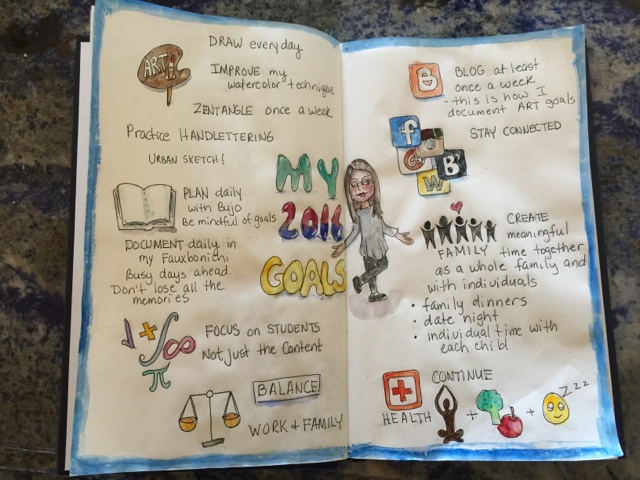 ART!
DRAW everyday
IMPROVE my
watercolor technique
ZENTANGLE once a week
Practice HANDLETTERING
URBAN SKETCH!
PLAN daily
with Bujo
Be mindful of goals
DOCUMENT daily in
my Fauxbonichi
Busy days ahead.
Don't lose all the
memories
FOCUS on STUDENTS
Not just the Content
BALANCE
WORK & FAMILY
MY
2016
GOALS
B
BLOG at least
once a week
- this is how I
document ART goals
STAY CONNECTED
f
G+
B
W
FAMILY
CREATE
meaningful
time together
as a whole family and
with individuals
• family dinners
• date night
• individual time with
each child
CONTINUE
HEALTH
+
+
zzz